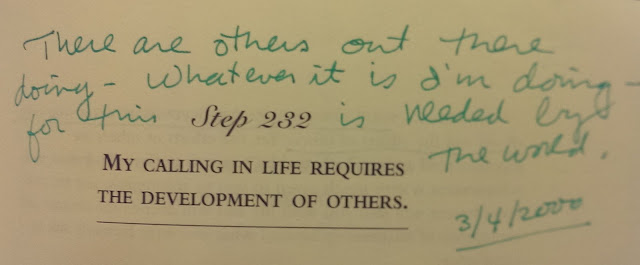 There are others out there
doing - Whatever it is I'm doing -
for this Step 232 is needed by
MY CALLING IN LIFE REQUIRES the world.
THE DEVELOPMENT OF OTHERS.
3/4/2000